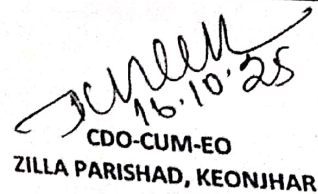 16.10.25
CDO-CUM-EO
ZILLA PARISHAD, KEONJHAR